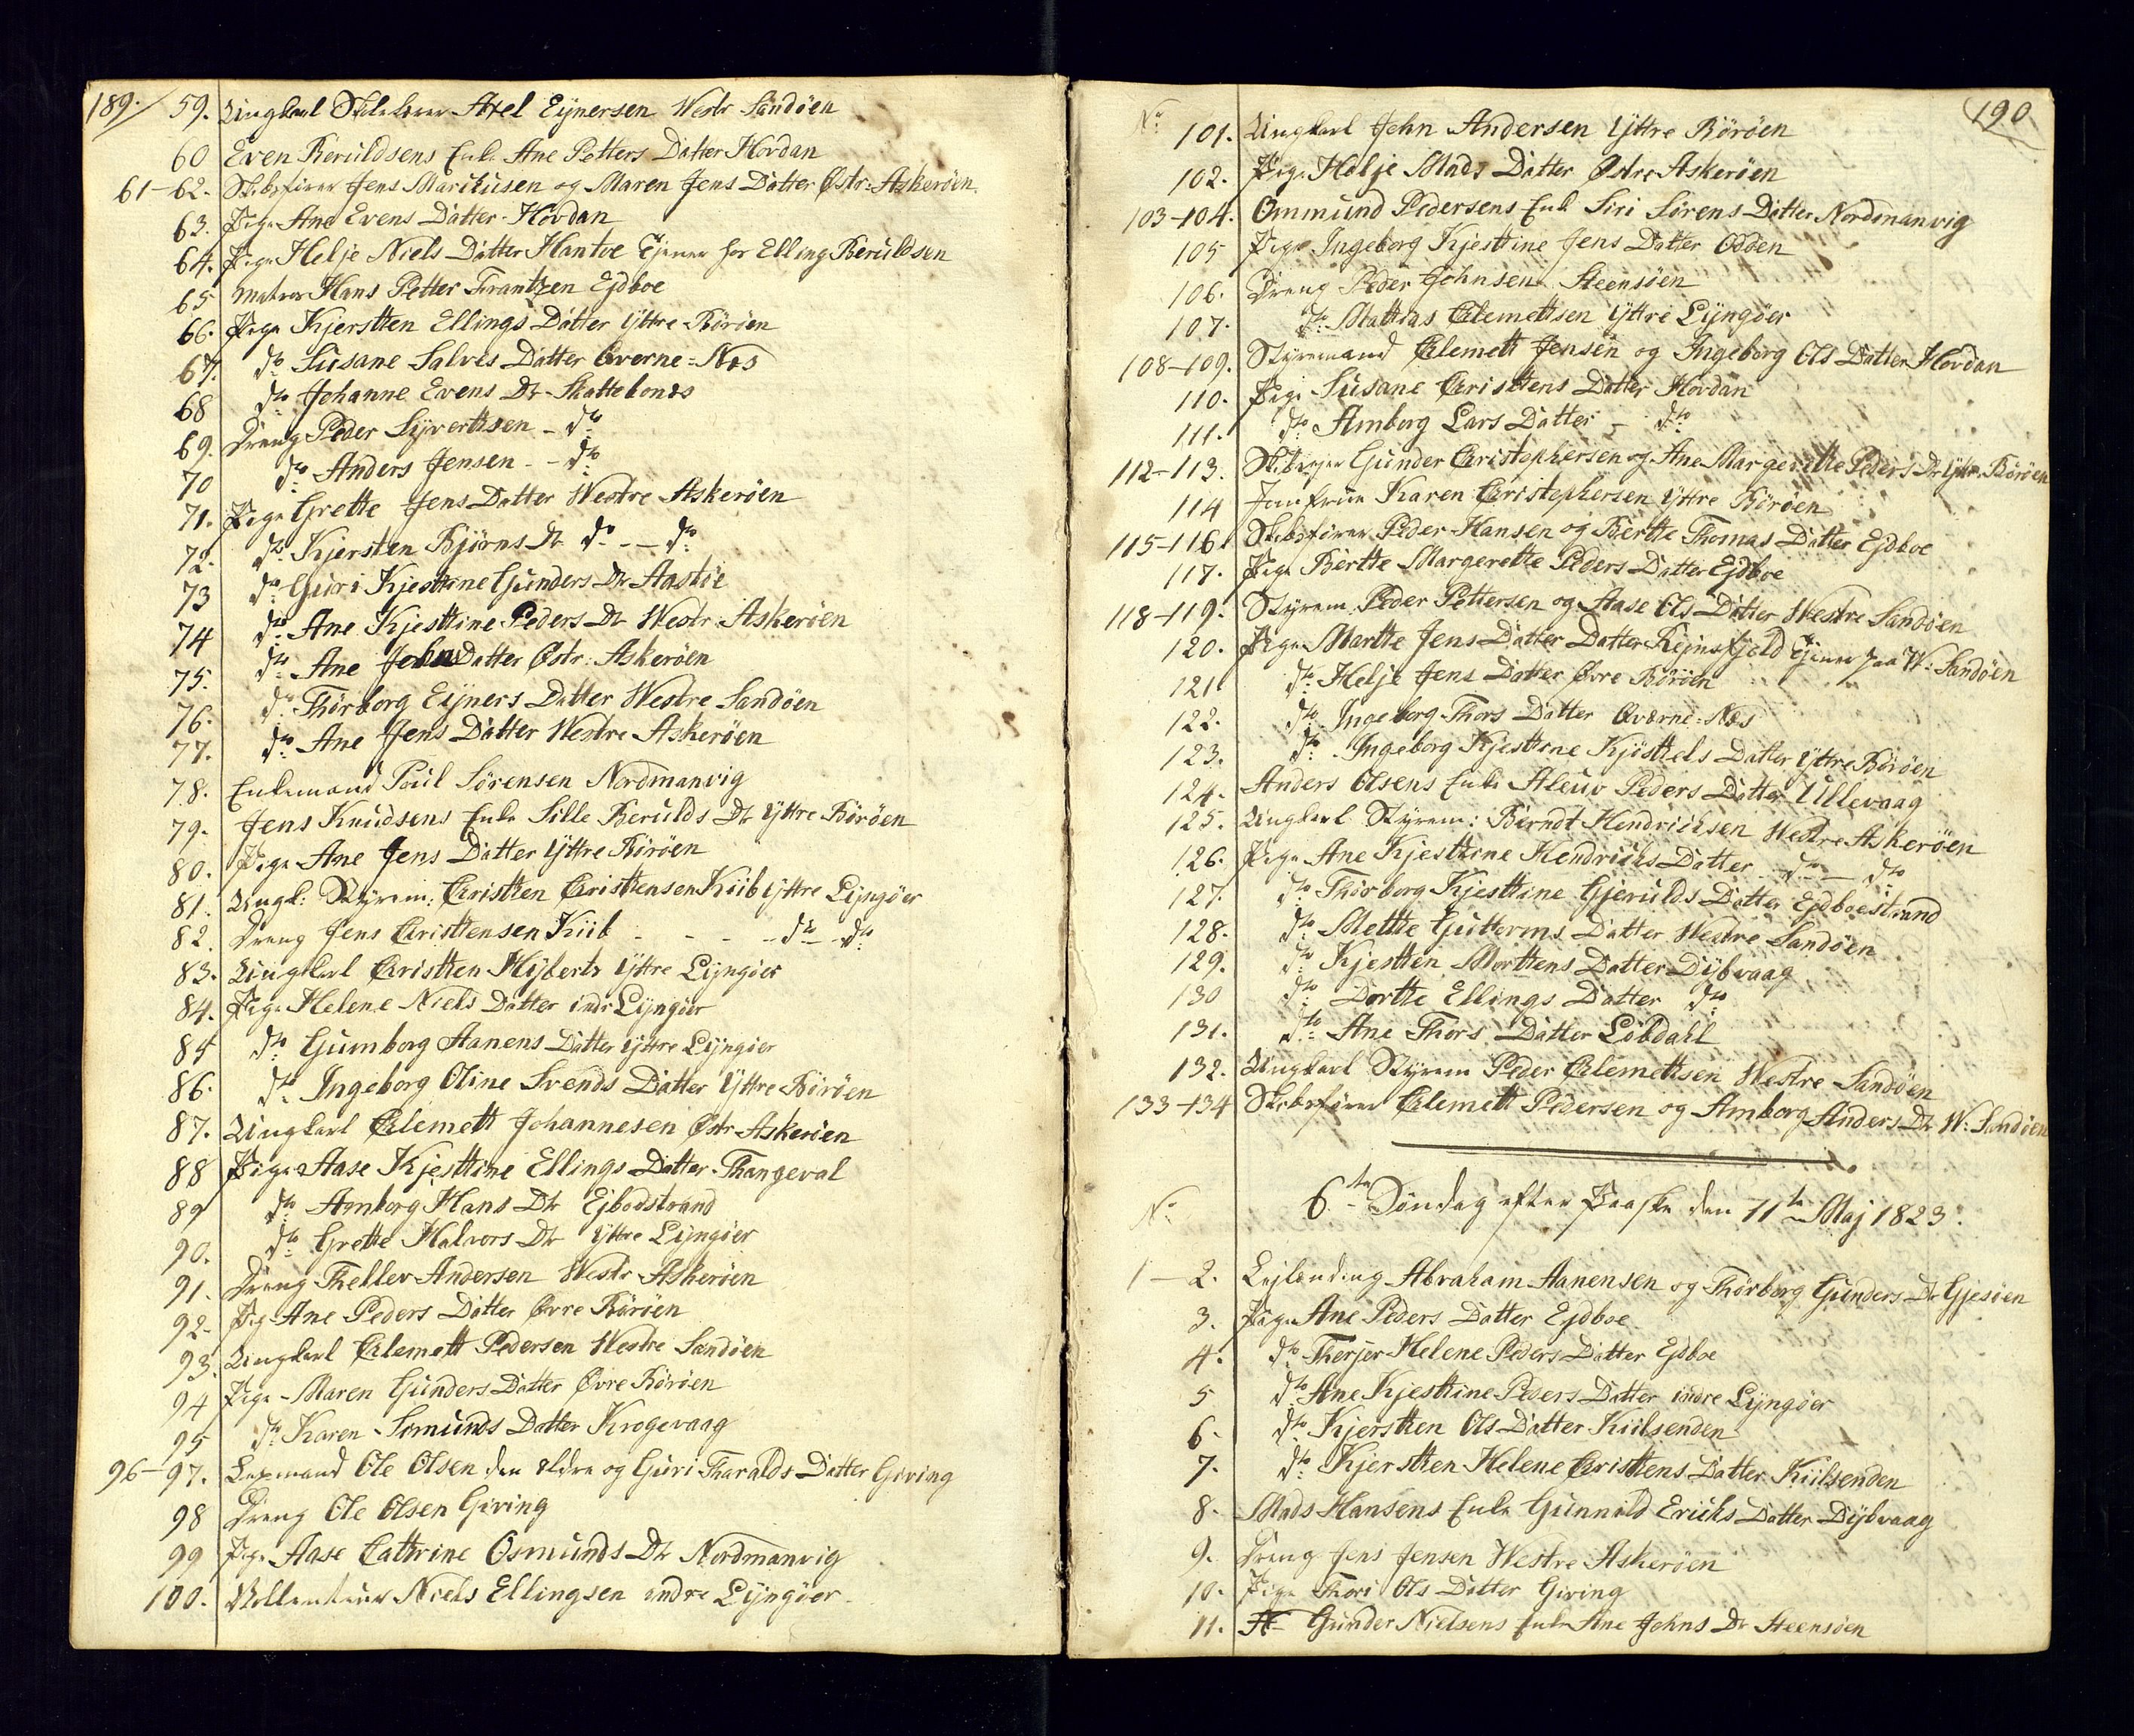 189.
59. Ungkarl Skolelærer Axel Eÿnersen Westr Sandöen
60 Even Berüldsens Enke Ane Petters Datter Hovdan
61-62. Skibsfører Jens Marcüsen og Maren Jens Datter Østr: Askeröen
63. Pige Ane Evens Datter Hovdan
64. Pige Helje Niels Datter Hantoe tjener for Elling Berüldsen
65 Matros Hans Petter Frantzen Ejdboe
66. Pige Kjerstten Ellings Datter Ÿttre Böröen
67. dto Süsane Salves Datter Qverne-Næs
68 dto Johanne Evens Dtr Skattebonæs
69. Dreng Peder Sÿverttsen - dto
70 dto Anders Jensen - - dto
71. Pige Grette Jens Datter Westre Askeröen
72. dto Kjersten Bjørns Dtr dto - - dto
73 dto Güri Kjesttine Günders Dtr Aastöe
74 dto Ane Kjesttine Peders Dtr Westr Askeröen
75. dto Ane Johns Datter Østr: Askeröen
76. dto Thörborg Eÿners Datter Westre Sandöen
77. dto Ane Jens Datter Westre Askeröen
78. Enkemand Poül Sörensen Nordmanvig
79. Jens Knüdsens Enke Sille Berülds Dtr Ÿttre Böröen
80. Pige Ane Jens Datter Ÿttre Böröen
81. Ungk: Stÿrem: Christten Christtensen Kiib Ÿttre Lÿngöer
82. Dreng Jens Christtensen Kiib - - - - dto - dto
83. Ungkarl Christten Hÿberts Ÿttre Lÿngöer
84. Pige Helene Niels Datter indr Lÿngöer
85 dto Gümborg Aanens Datter Ÿttre Lÿngöer
86. dto Ingeborg Oline Svends Datter Ÿttre Böröen
87. Ungkarl Clemett Johannesen Østr Askeröen
88 Pige Aase Kjesttine Ellings Datter Thangeval
89 dto Amborg Hans Dtr Ejbodstrand
90. dto Grette Halvors Dtr Ÿttre Lÿngöer
91. Dreng Thellev Andersen Westr Askeröen
92. Pig Ane Peders Datter Øvre Böröen
93. Ungkarl Clemett Pedersen Westre Sandöen
94 Pige Maren Günders Datter Øvre Böröen
95 dto Karen Somünds Datter Krogevaag
96-97. Ole Olsen den eldre og Güri Tharalds Datter Giving
98 Dreng Ole Olsen Giving
99 Pige Aase Cathrine Osmünds Dtr Nordmanvig
100. Niels Ellingsen indre Lÿngöer
190
No
101. Ungkarl John Andersen Ÿttre Böröen
102. Pige Helje Mads Datter Østre Askeröen
103-104. Ommünd Pedersens Enke Siri Sörens Datter Nordmanvig
105 Pige Ingeborg Kjesttine Jens Datter Odden
106. Dreng Peder Johnsen Steensöen
107. dto Mattias Clemettsen Ÿttre Lÿngöer
108-109. Stÿremand Clemett Jensen og Ingeborg Ols Datter Hovdan
110. Pige Süsane Christtens Datter Hovdan
111. dto Amborg Lars Datter - dto
112-113. Günder Christophersen og Ane Margeritthe Peders Dtr Ÿttr: Böröen
114 Jomfrue Karen Christophersen Ÿttre Böröen
115-116 Skibsfører Peder Hansen og Bertte Thomas Datter Ejdboe
117. Pige Bertte Margerette Peders Datter Ejdboe
118-119. Stÿrem Peder Pettersen og Aase Ols Datter Westre Sandöen
120. Pige Martte Jens Datter Datter Rejmsfjeld tjener paa W: Sandöen
121 dto Helje Jens Datter Øvre Böröen
122. dto Ingeborg Thors Datter Qværne-Næs
123. dto Ingeborg Kjesttine Kjisttels Datter Ÿttre Böröen
124. Anders Olsens Enke Aleuv Peders Datter Ullevaag
125. Ungkarl Stÿrem: Berndt Hendrichsen Westre Askeröen
126. Pige Ane Kjesttine Hendrichs Datter - dto - dto
127. dto Thörborg Kjesttine Gjerülds Datter Ejdboestrand
128. dto Mettte Gütterms Datter Westre Sandöen
129. dto Kjestten Morttens Datter Dÿbvaag
130 dto Dortte Ellings Datter dto
131. dto Ane Thors Datter Löbdahl
132. Ungkarl Stÿrem Peder Clemettsen Westre Sandöen
133-134 Skibsfører Clemett Pedersen og Amborg Anders Dtr W: Sandöen
No 6te Söndag efter Paaske den 11te Maj 1823.
1-2. Lejlending Abraham Aanensen og Thörborg Günders Dr Gjesöen
3. Pige Ane Peders Datter Ejdboe
4. dto Therjer Helene Peders Datter Ejdboe
5 dto Ane Kjesttine Peders Datter indre Lÿngöer
6. dto Kjerstten Ols Datter Kiilsenden
7. dto Kjerstten Helene Christtens Datter Kiilsenden
8. Mads Hansens Enke Günnild Erichs Datter Dÿbvaag
9. Dreng Jens Jensen Westre Askeröen
10. Pige Thori Ols Datter Giving
11. Günder Nielsens Enke Ane Johns Dr Steensöen